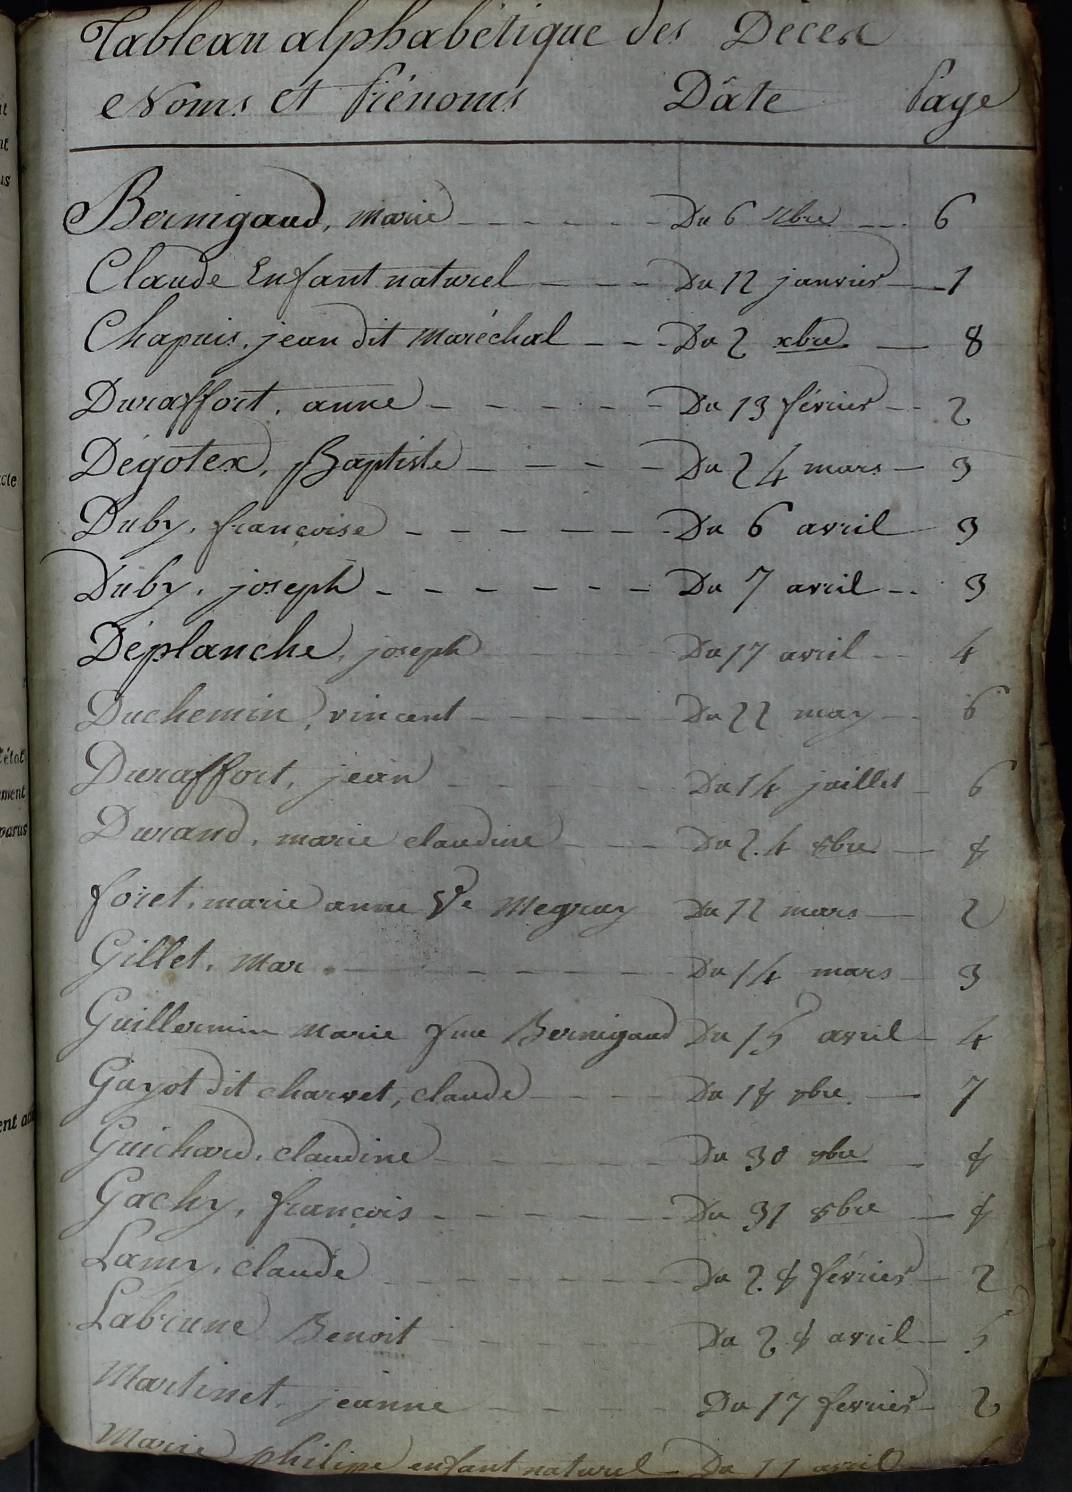 Tableau alphabétique des Décex
Noms et Prénoms Dâte Page
Bernigaud, marie Du 6 xbre 6
Claude Enfant naturel Du 12 janvier 1
Chapuis, jean dit Maréchal Du 2 xbre 8
Duraffort, anne Du 13 février 2
Dégotex, Baptiste Du 24 mars 3
Duby, françoise Du 6 avril 3
Duby, joseph Du 7 avril 3
Déplanche, joseph Du 17 avril 4
Duchemin, vincent Du 22 may 6
Duraffort, jean Du 14 juillet 6
Durand, marie claudine Du 24 8bre 8
foret, marie anne Ve Megray Du 12 mars 2
Gillet, Mar Du 14 mars 3
Guillermin Marie fme Bernigaud Du 15 avril 4
Guyot dit charvet, claude Du 18 8bre 7
Guichard, claudine Du 30 8bre 8
Gachy, françois Du 31 8bre 8
Lamy, claude Du 28 février 2
Labrune Benoit Du 28 avril 5
Martinet, jeanne Du 17 fevrier 2
Marie philipe enfant naturel Du 11 avril
ent
parus
ement
l'état
cte